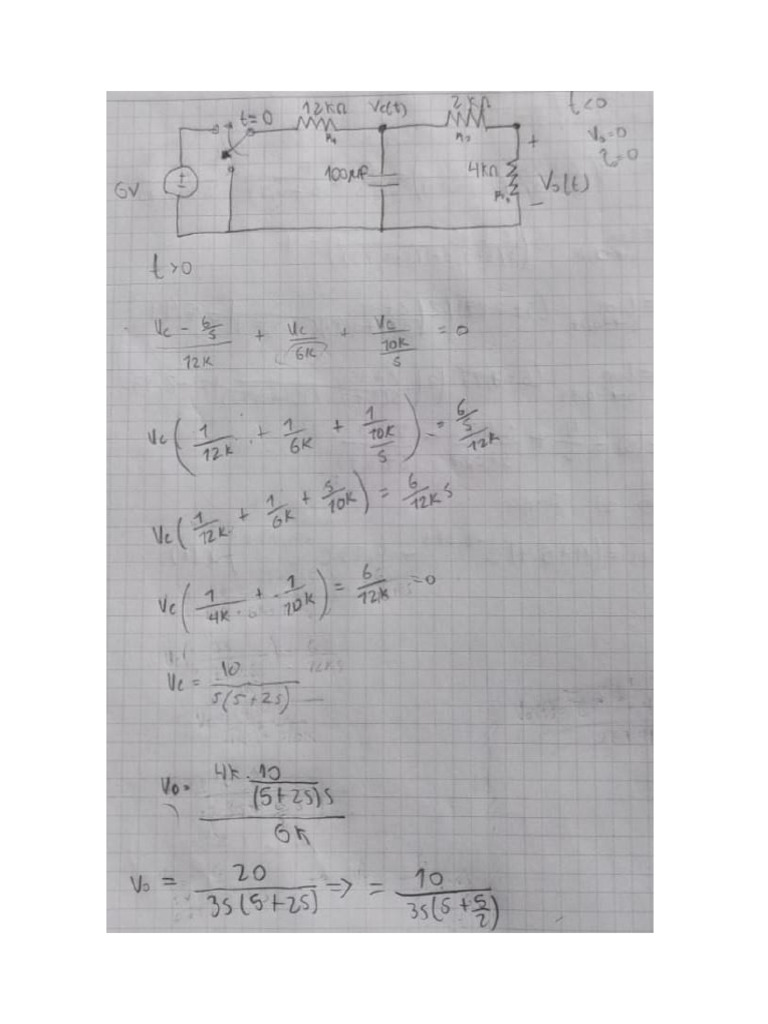 t=0 12KΩ Vc(t) 2KΩ t<0
R1 R2 + V0=0
i=0
6V 100μF 4KΩ V0(t)
-
t>0
(Vc - 6/s)/12K + Vc/6K + V0/(10K/s) = 0
Vc(1/12K + 1/6K + 1/(10K/s)) = (6/s)/12K
Vc(1/12K + 1/6K + s/10K) = 6/12Ks
Vc(1/4K + 1/10K) = 6/12K =0
Vc = 10/s(5+2s)
V0= (4K · 10/(5+2s)s)/6K
V0 = 20/3s(5+2s) => = 10/3s(s+5/2)